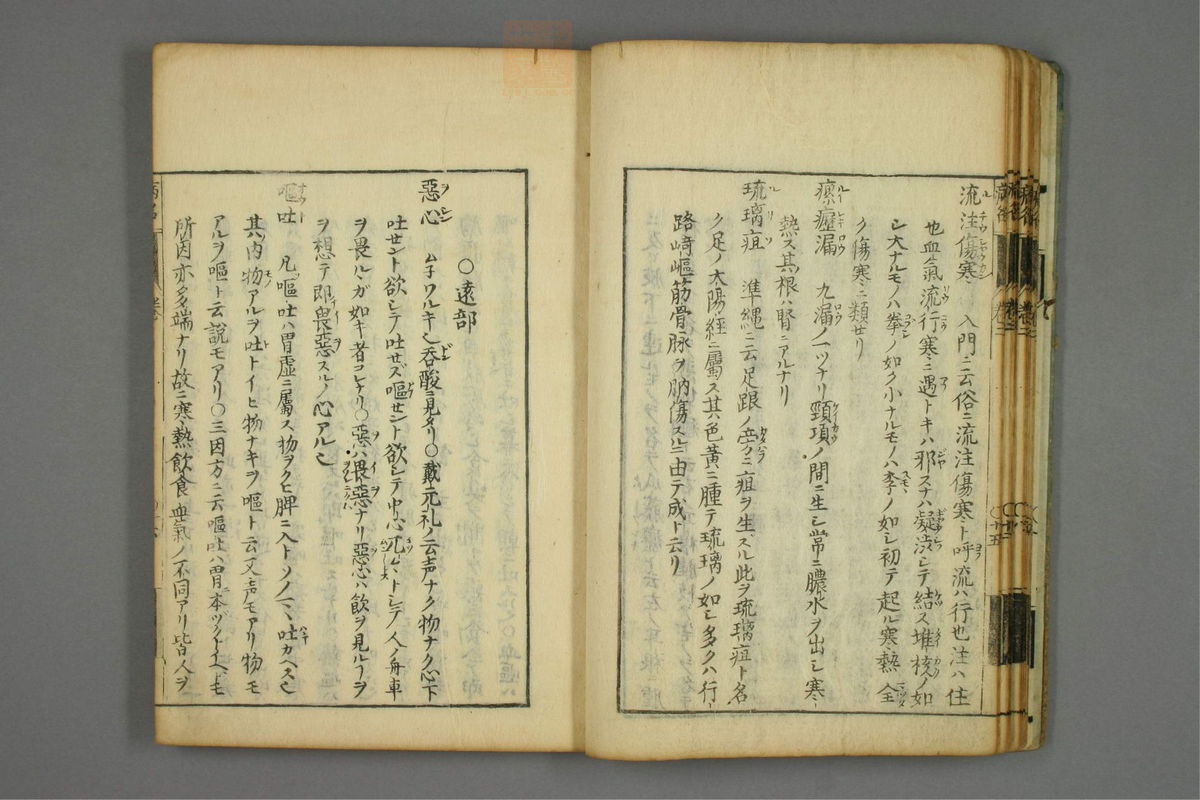 流注傷寒 入門ニ云俗ニ流注傷寒ト呼流ハ行也注ハ住
也血氣流行寒ニ遇トキハ邪スナハ凝渋シテ結ス堆核ノ如
シ大ナルモノハ拳ノ如ク小ナルモノハ李ノ如シ初テ起ル寒熱全
ク傷寒ニ類せリ
瘰癧漏 九漏ノ一ツナリ頸項ノ間ニ生シ常ニ膿水ヲ出シ寒
熱ス其根ハ腎ニアルナリ
琉璃疽 準縄ニ云足跟ノ旁ニ疽ヲ生スル此ヲ琉璃疽ト名
ク足ノ太陽經ニ屬ス其色黃ニ腫テ琉璃ノ如シ多クハ行
路﨑嶇筋骨脉ヲ肭傷スルニ由テ成ト云リ
○遠部
惡心 ムチワルキ也呑酸ニ見タリ○戴元礼ノ云声ナク物ナク心下
吐せント欲シテ吐せズ嘔せント欲シテ中心兀〻トシテ人ノ舟車
ヲ畏ルヽガ如キ者コレナリ○惡ハ畏惡ナリ惡心ハ飲ヲ見ルヲ
ヲ想テ即畏惡スルノ心アル也
嘔吐 凡嘔吐ハ胃虚ニ屬ス物ヲクヒ脾ニ入トソノマヽ吐カヘス也
其内物アルヲ吐トイヒ物ナキヲ嘔ト云又声モアリ物モ
アルヲ嘔ト云説モアリ○三因方ニ云嘔吐ハ胃ニ本ヅクトイヘドモ
所因亦多端ナリ故ニ寒熱飲食血氣ノ不同アリ皆人ヲ